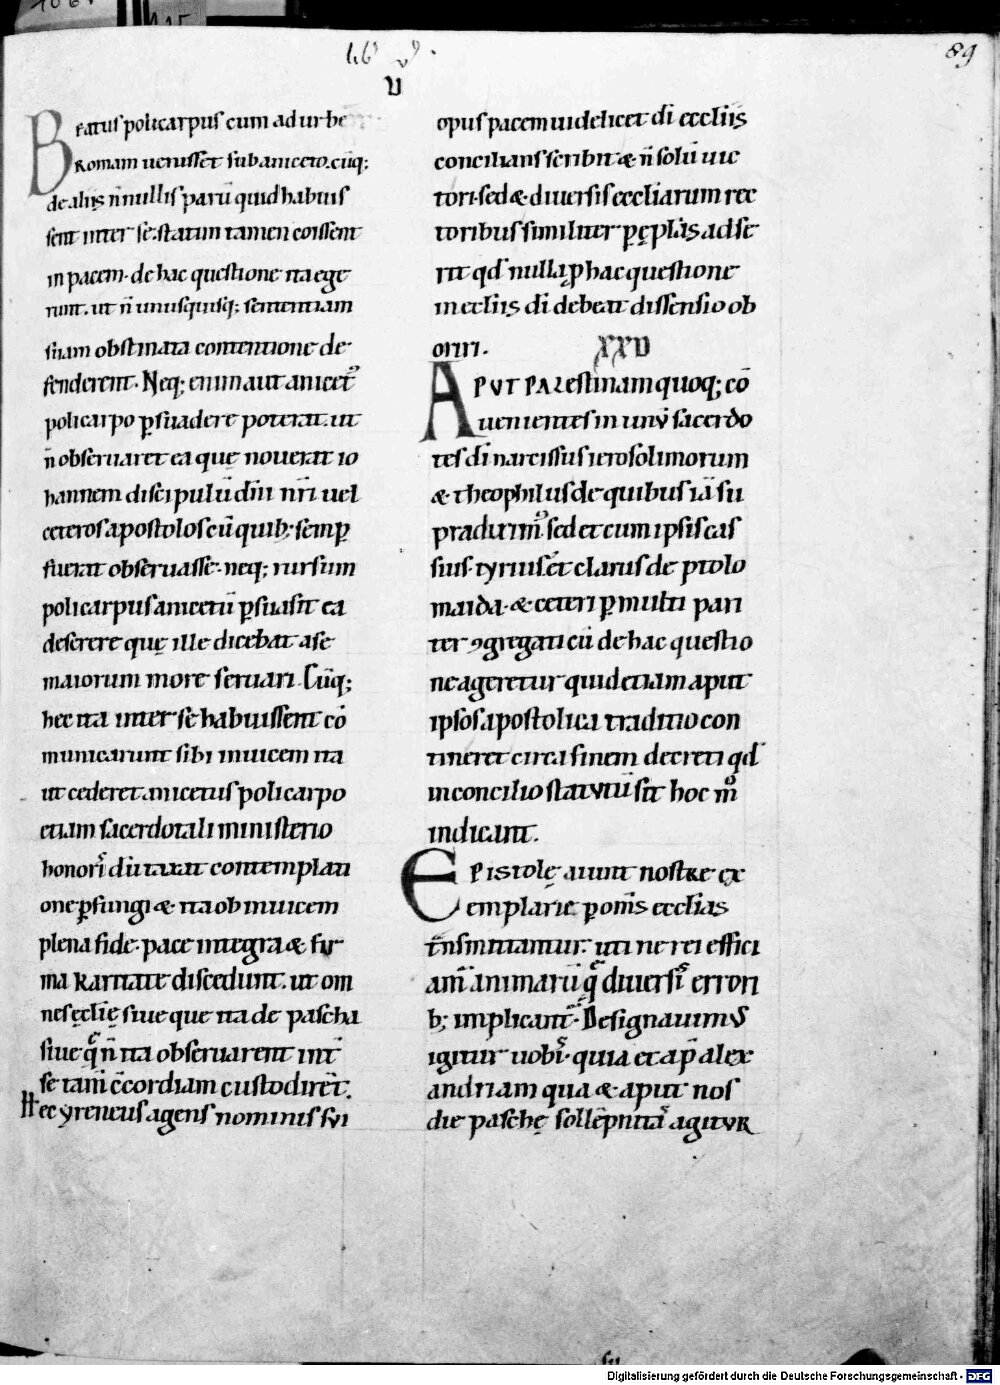 lib' v'.
89
U
Beatus policarpus cum ad urbe
Romam uenisset sub aniceto. cūq;
de aliis n̄nullis parū quid habuis
sent inter se. statim tamen coissent
in pacem. de hac questione ita ege
runt. ut n̄ unusquisq; sententiam
suam obstinata contentione de
fenderent. Neq; enim aut anicet'
policarpo p̱suadere poterat. ut
n̄ obseruaret ea quę nouerat io
hannem discipulū dn̄i nr̄i uel
ceteros apostolos cū quib; semp̱
fuerat obseruasse. neq; rursum
policarpus anicetū p̱suasit ea
deserere quę ille dicebat a se
maiorum more seruari. Cūq;
hec ita inter se habuissent cō
municarunt sibi inuicem ita
ut cederet anicetus policarpo
etiam sacerdotali ministerio
honoris dūtaxat contemplati
one p̱fungi & ita ob inuicem
plena fide. pace integra & fir
ma karitate discedunt. ut om
nes ęclię siue que ita de pascha
siue q̄ n̄ ita obseruarent int̄
se tam̄ c̄cordiam custodirēt.
Hec yreneus agens nominis sui
opus pacem uidelicet di eccliis
concilians scribit & n̄ solū uic
tori. sed & diuersis eccliarum rec
toribus similiter p̱ ęplās ad se
rit qd nulla p̱ hac questione
in ecliis di debeat dissensio ob
oriri.
XXV
Aput palestinam quoq; cō
uenientes in unū sacerdo
tes di narcissus ierosolimorum
& theophilus de quibus iā su
pra duxim'. sed et cum ipsis cas
sius. tyrius. et clarus de ptolo
maida. & ceteri p̱multi pari
ter ꝯgregati cū de hac questio
ne ageretur quid etiam aput
ipsos apostolica traditio con
tineret circa finem decreti qd
in concilio statutū sit hoc m̊
indicant.
Epistolę aiunt nostre ex
emplarie p̱ om̄s ecclias
t̄nsmittamur. uti ne rei effici
am̄ animarū q̄ diuersis errori
b; implicant̄. Designauimus
igitur uobis. quia et ap̄ alex
andriam qua & aput nos
die paschę sollēpnitas agitur
su
Digitalisierung gefördert durch die Deutsche Forschungsgemeinschaft - DFG